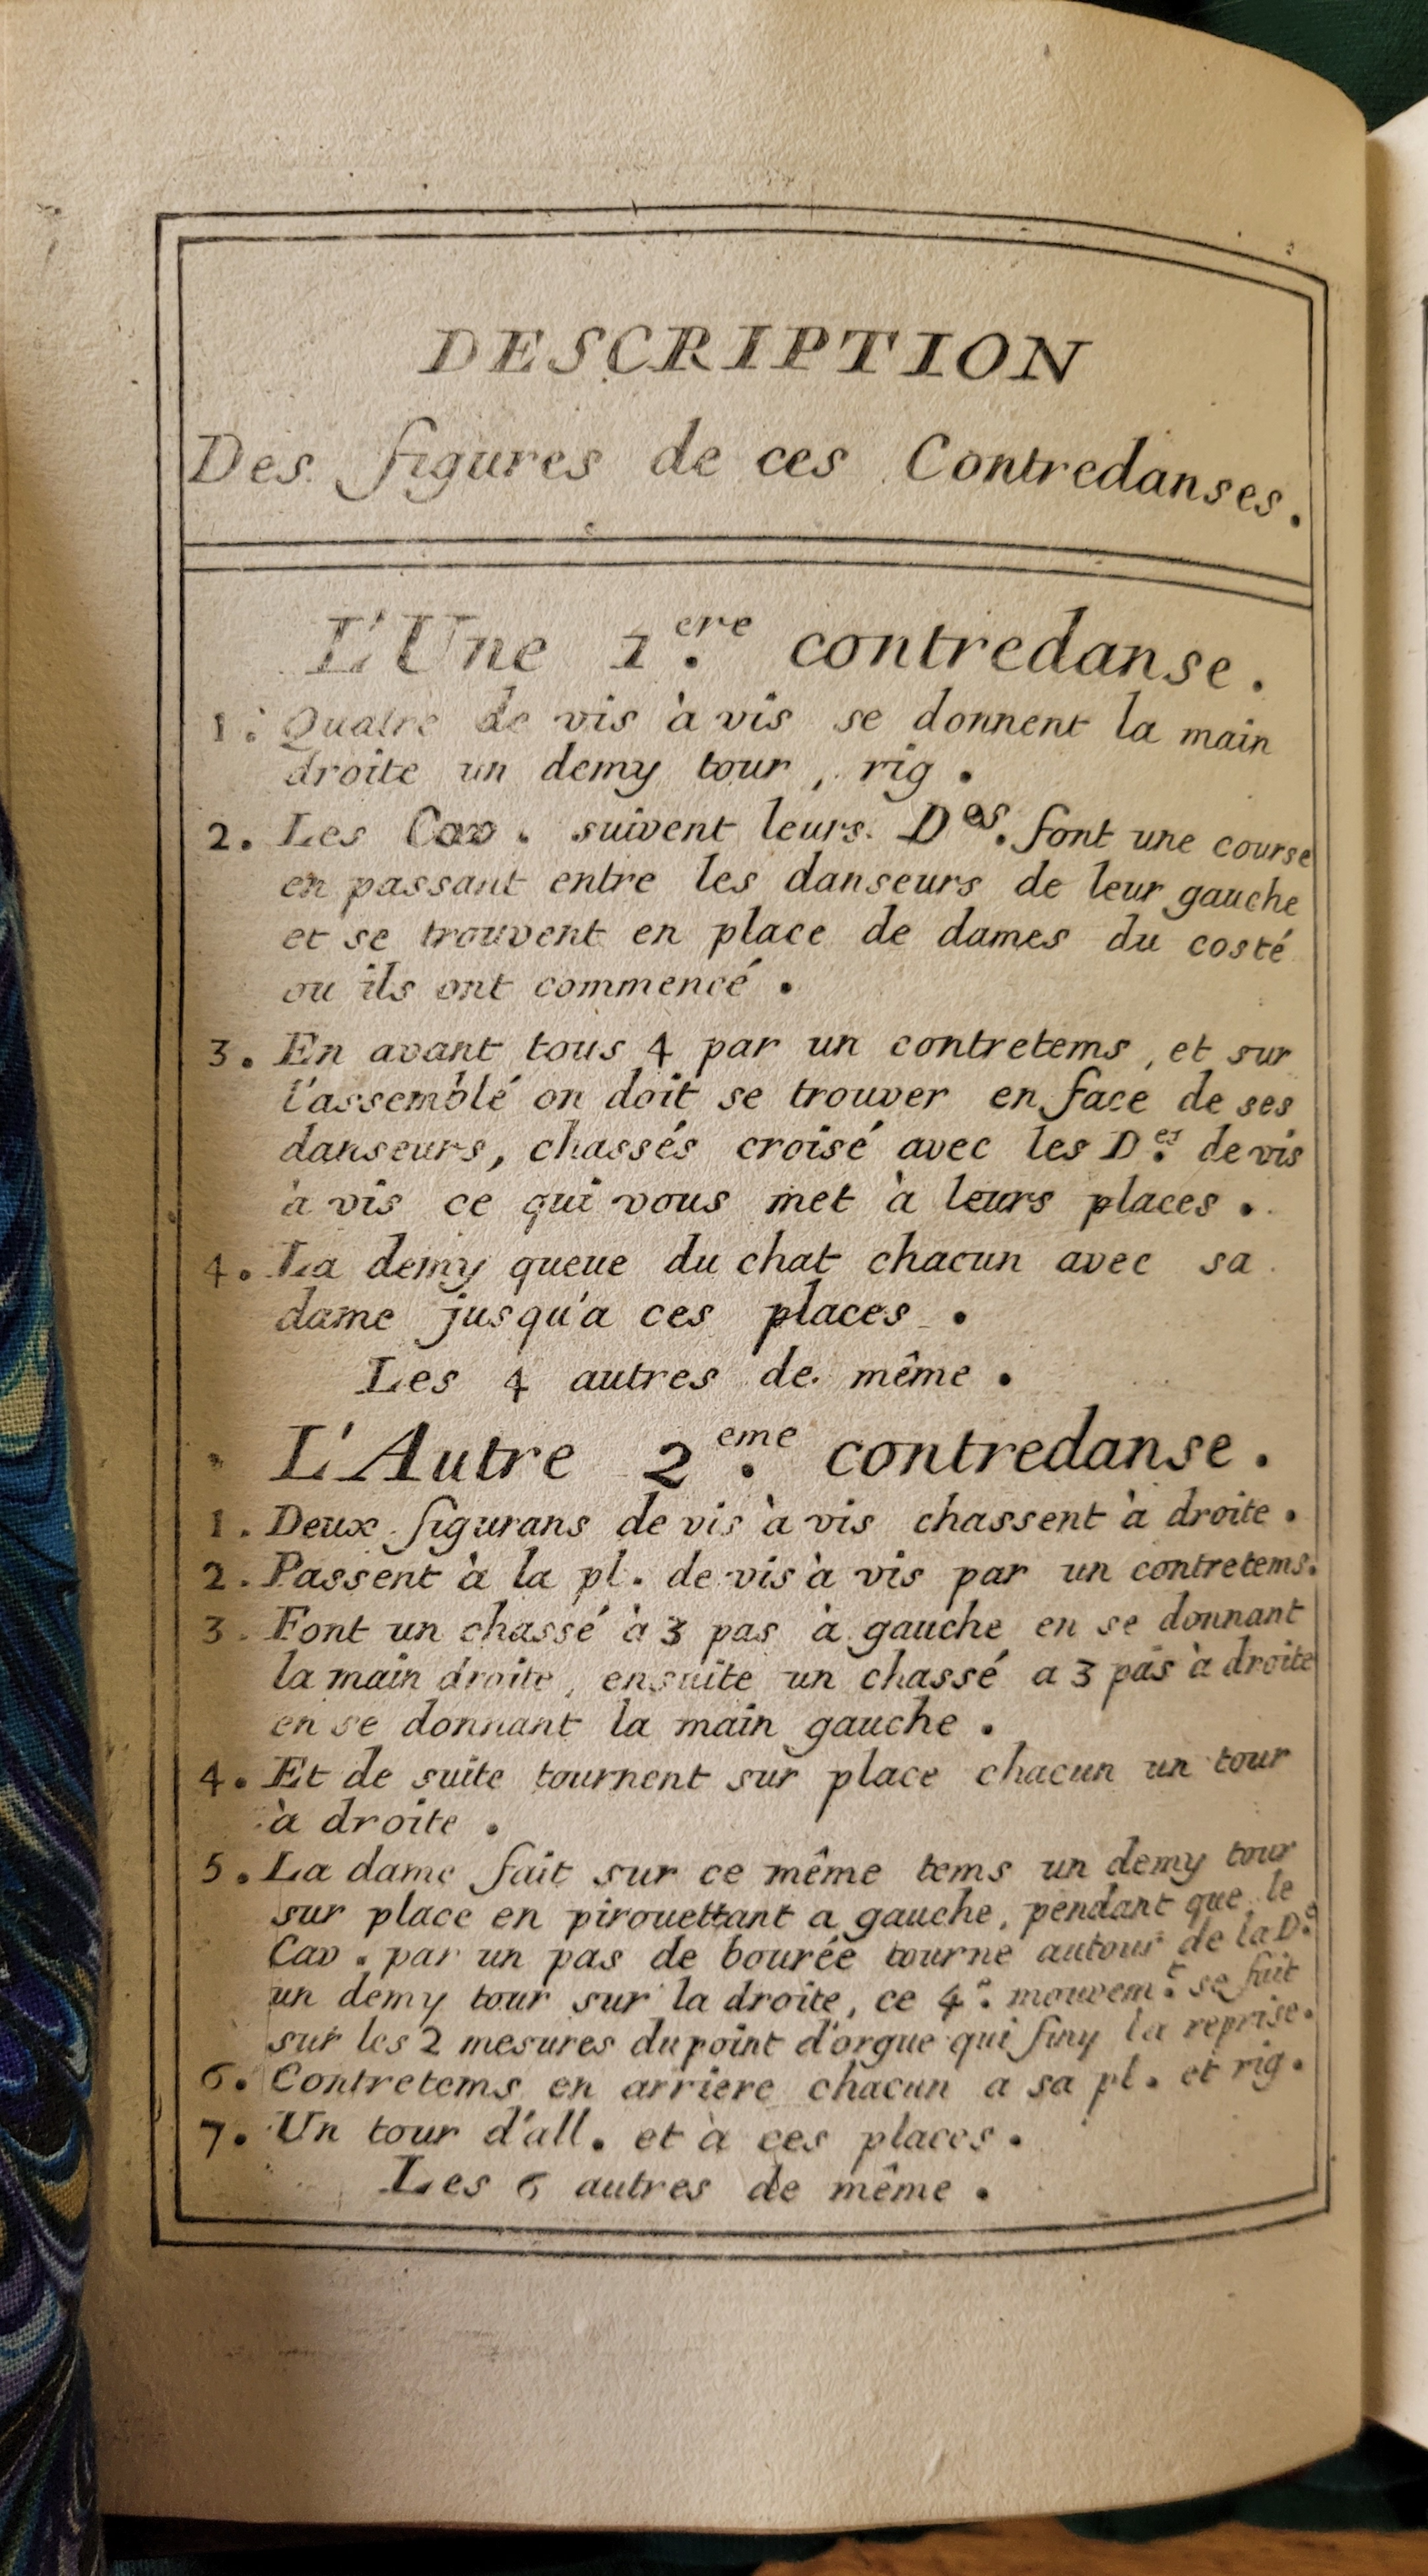 DESCRIPTION
Des figures de ces Contredanses.
L'Une 1.ere contredanse.
1. Quatre de vis à vis se donnent la main
droite un demy tour, rig.
2. Les Cav. suivent leurs D.es font une course
en passant entre les danseurs de leur gauche
et se trouvent en place de dames du costé
ou ils ont commencé.
3. En avant tous 4 par un contretems, et sur
l'assemblé on doit se trouver en face de ses
danseurs, chassés croisé avec les D.es de vis
à vis ce qui vous met à leurs places.
4. La demy queue du chat chacun avec sa
dame jusqu'a ces places.
Les 4 autres de même.
L'Autre 2.eme contredanse.
1. Deux figurans de vis à vis chassent à droite.
2. Passent à la pl. de vis à vis par un contretems.
3. Font un chassé à 3 pas à gauche en se donnant
la main droite, ensuite un chassé a 3 pas à droite
en se donnant la main gauche.
4. Et de suite tournent sur place chacun un tour
à droite.
5. La dame fait sur ce même tems un demy tour
sur place en pirouettant a gauche, pendant que le
Cav. par un pas de bourée tourne autour de la D.e
un demy tour sur la droite, ce 4.e mouvem.t se fait
sur les 2 mesures du point d'orgue qui finy la reprise.
6. Contretems en arriere chacun a sa pl. et rig.
7. Un tour d'all. et à ces places.
Les 6 autres de même.